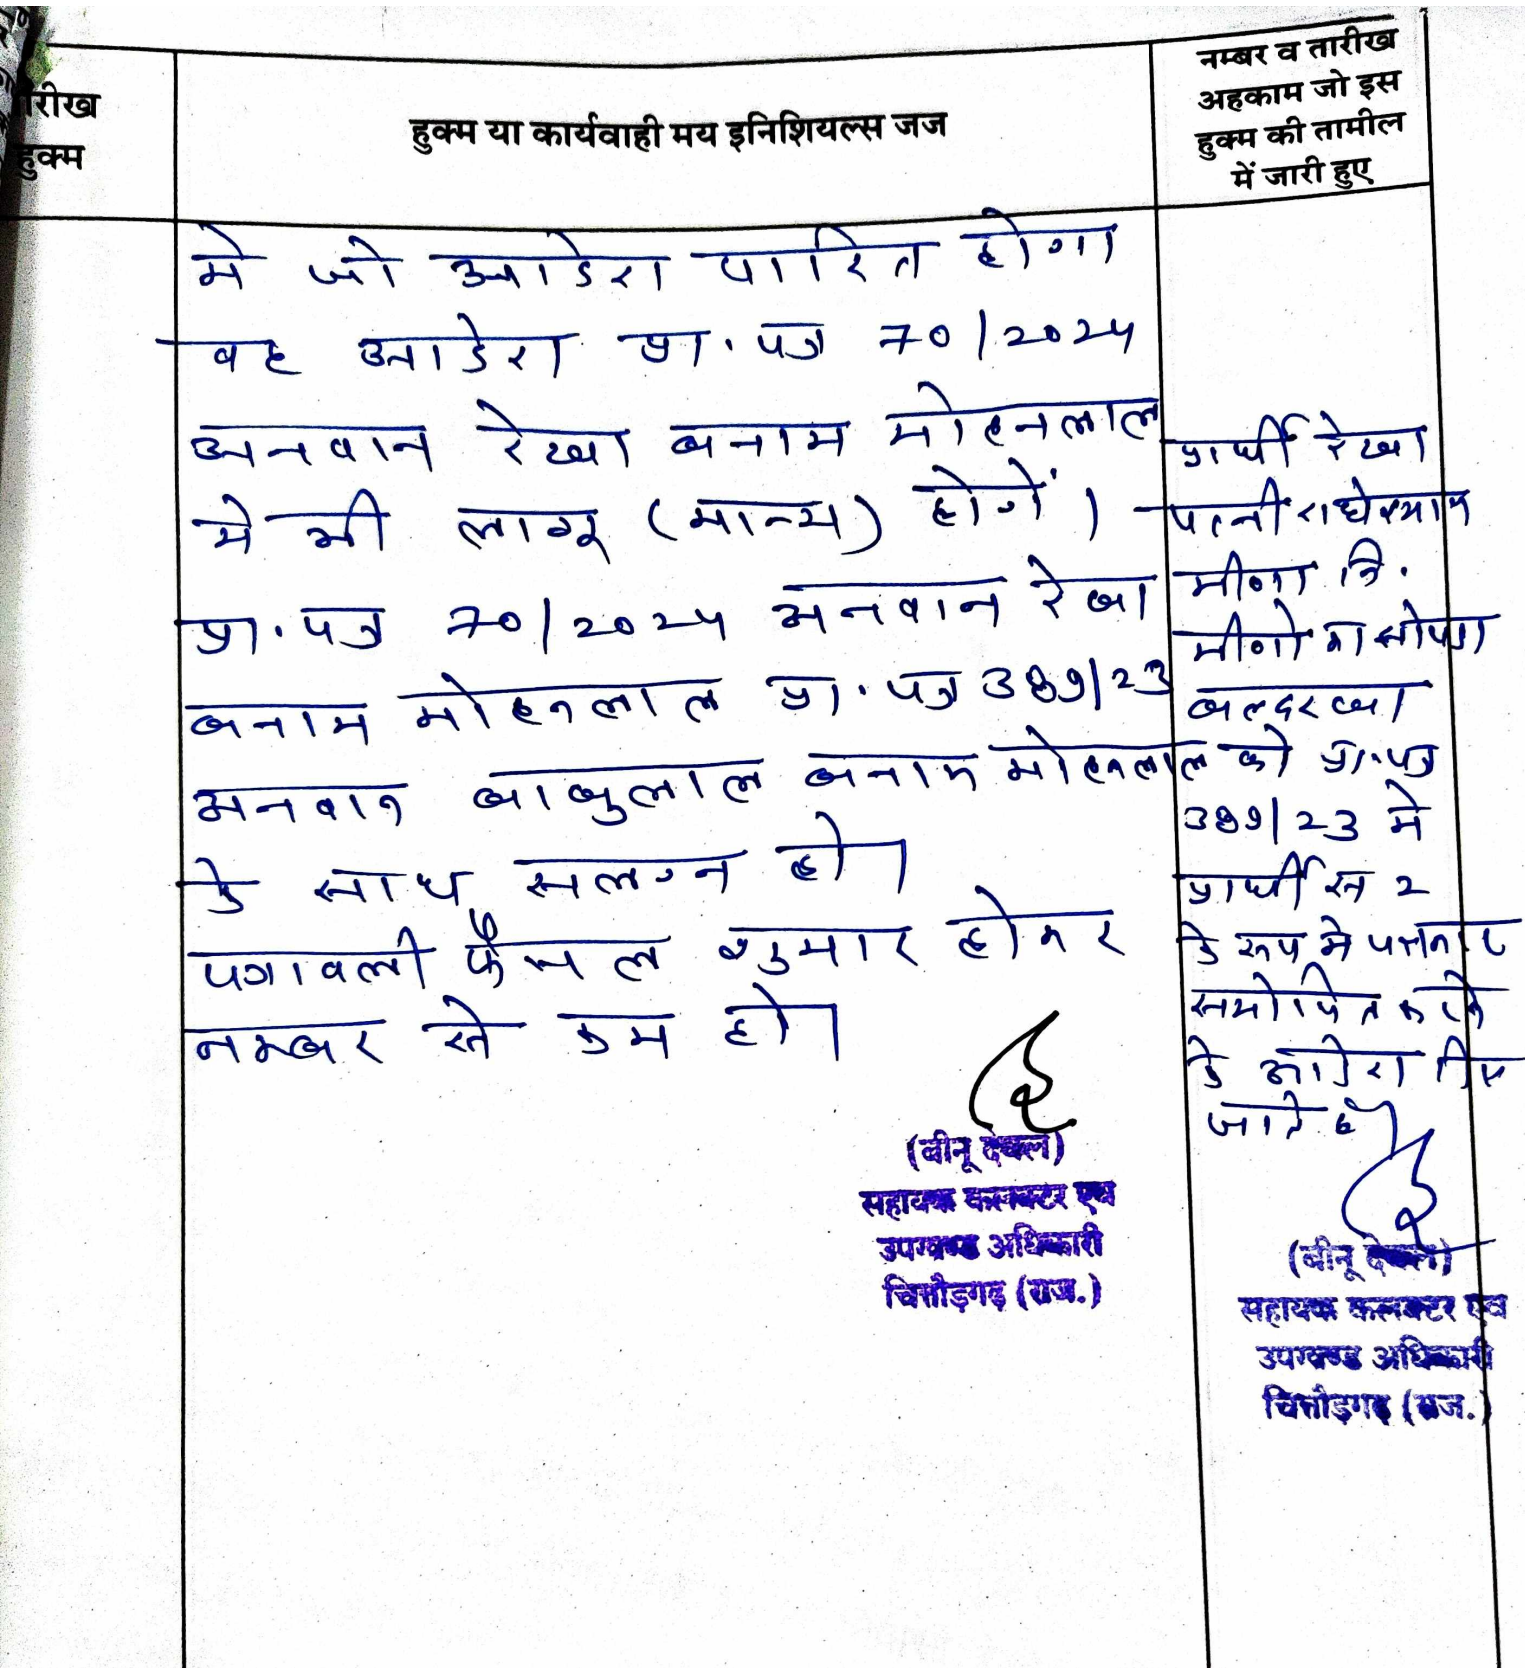 तारीख
हुक्म
हुक्म या कार्यवाही मय इनिशियल्स जज
नम्बर व तारीख
अहकाम जो इस
हुक्म की तामील
में जारी हुए
मे जो आदेश पारित होगा
वह आदेश प्रा. पत्र 70/2024
अनवान रेखा बनाम मोहनलाल
मे भी लागू (मान्य) होगें।
प्रा. पत्र 70/2024 अनवान रेखा
बनाम मोहनलाल प्रा. पत्र 389/23
अनवान बाबुलाल बनाम मोहनलाल
के साथ सलग्न हो।
पत्रावली फैसल शुमार होकर
नम्बर से कम हो।
(बीनू देवल)
सहायक कलक्टर एवं
उपखण्ड अधिकारी
चित्तौड़गढ़ (राज.)
प्रार्थी रेखा
पत्नी राधेश्याम
मीणा नि.
मीणो का
बल्दरखा
को प्रा. पत्र
389/23 मे
प्रार्थी स 2
के रूप मे पक्षकार
करने
के आदेश दिए
जाते है
(बीनू देवल)
सहायक कलक्टर एवं
उपखण्ड अधिकारी
चित्तौड़गढ़ (राज.)